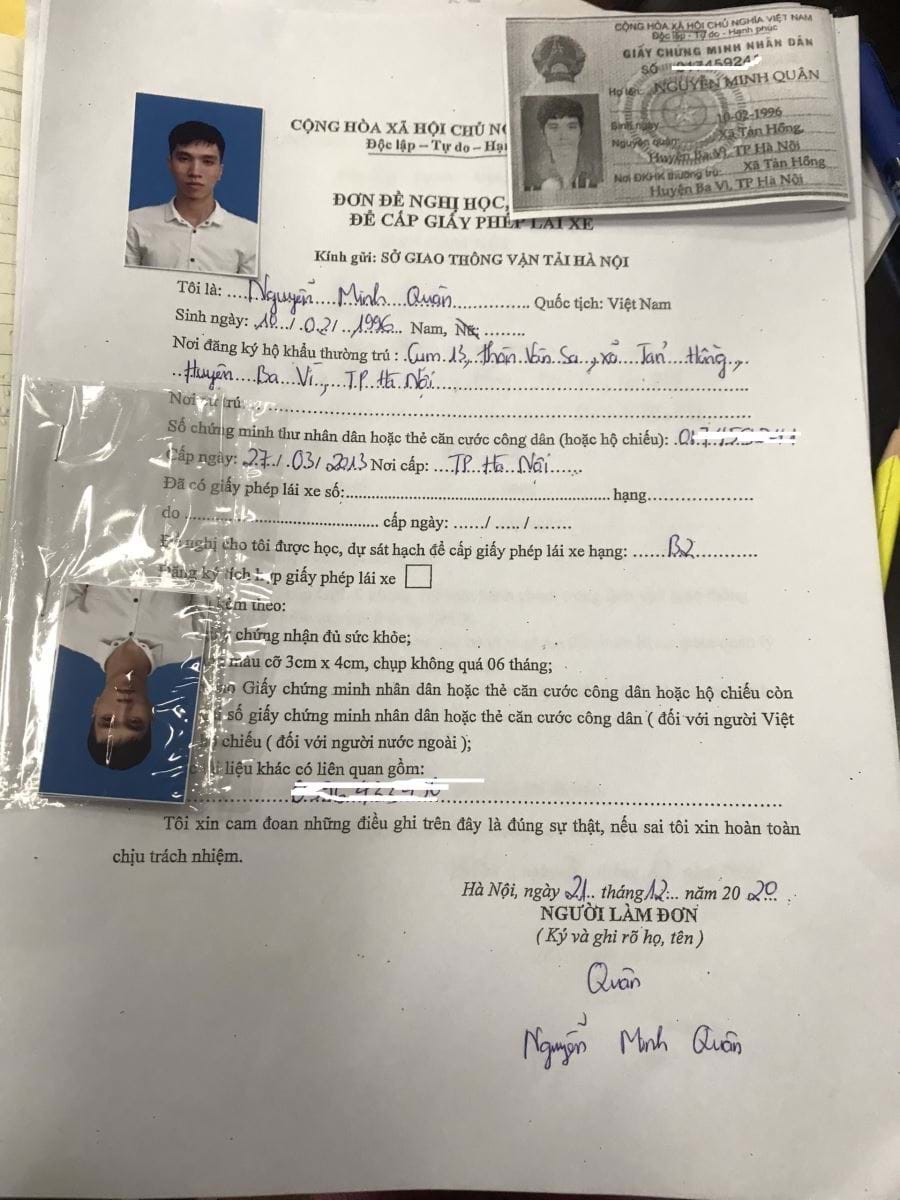 CỘNG HÒA XÃ HỘI CHỦ NGHĨA VIỆT NAM
Độc lập - Tự do - Hạnh phúc
GIẤY CHỨNG MINH NHÂN DÂN
SỐ
Họ tên: NGUYỄN MINH QUÂN
Sinh ngày: 10-02-1996
Nguyên quán: Xã Tản Hồng,
Huyện Ba Vì, TP Hà Nội
Nơi ĐKHK thường trú: Xã Tản Hồng
Huyện Ba Vì, TP Hà Nội
CỘNG HÒA XÃ HỘI CHỦ
Độc lập – Tự do –
ĐƠN ĐỀ NGHỊ HỌC,
ĐỂ CẤP GIẤY PHÉP LÁI XE
Kính gửi: SỞ GIAO THÔNG VẬN TẢI HÀ NỘI
Tôi là: Nguyễn Minh Quân Quốc tịch: Việt Nam
Sinh ngày: 10 / 02 / 1996 Nam,
Nơi đăng ký hộ khẩu thường trú : Cụm 13, thôn Vân Sa, xã Tản Hồng,
Huyện Ba Vì, TP. Hà Nội
Nơi cư trú
Số chứng minh thư nhân dân hoặc thẻ căn cước công dân (hoặc hộ chiếu):
Cấp ngày: 27 / 03 / 2013 Nơi cấp: TP. Hà Nội
Đã có giấy phép lái xe số: hạng
do cấp ngày: / /
Đề nghị cho tôi được học, dự sát hạch để cấp giấy phép lái xe hạng: B2
Đăng ký tích hợp giấy phép lái xe
kèm theo:
chứng nhận đủ sức khỏe;
màu cỡ 3cm x 4cm, chụp không quá 06 tháng;
Giấy chứng minh nhân dân hoặc thẻ căn cước công dân hoặc hộ chiếu còn
số giấy chứng minh nhân dân hoặc thẻ căn cước công dân ( đối với người Việt
chiếu ( đối với người nước ngoài );
liệu khác có liên quan gồm:
Tôi xin cam đoan những điều ghi trên đây là đúng sự thật, nếu sai tôi xin hoàn toàn
chịu trách nhiệm.
Hà Nội, ngày 21 tháng 12 năm 20 20
NGƯỜI LÀM ĐƠN
( Ký và ghi rõ họ, tên )
Quân
Nguyễn Minh Quân